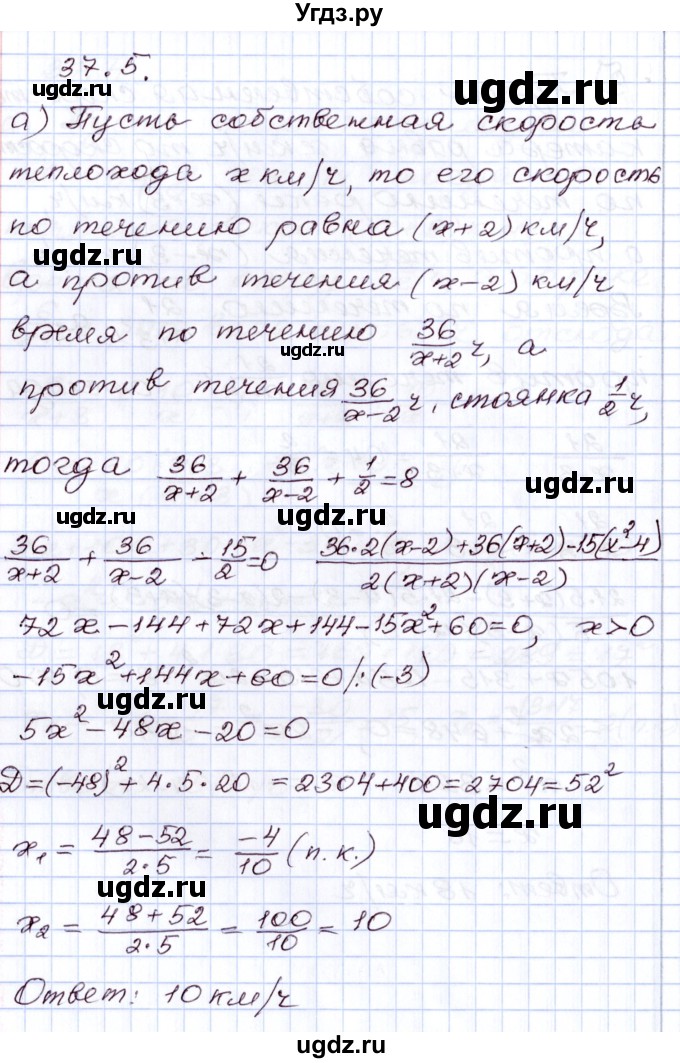 Угдз.ру
37.5.
ugdz.ru
а) Пусть собственная скорость
теплохода x км/ч, то его скорость
по течению равна (x+2) км/ч,
ugdz.ru
а против течения (x-2) км/ч
время по течению 36/(x+2) ч, а
ugdz.ru
против течения 36/(x-2) ч, стоянка 1/2 ч,
тогда 36/(x+2) + 36/(x-2) + 1/2 = 8
ugdz.ru
ugdz.ru
36/(x+2) + 36/(x-2) - 15/2 = 0 (36·2(x-2)+36(x+2)-15(x²-4))/(2(x+2)(x-2))
72x-144+72x+144-15x²+60=0, x>0
-15x²+144x+60=0 /:(-3)
ugdz.ru
5x²-48x-20=0
D=(-48)²+4·5·20 =2304+400=2704=52²
ugdz.ru
x₁ = (48-52)/(2·5) = -4/10 (п.к.)
ugdz.ru
x₂ = (48+52)/(2·5) = 100/10 = 10
Ответ: 10 км/ч
ugdz.ru
ugdz.ru